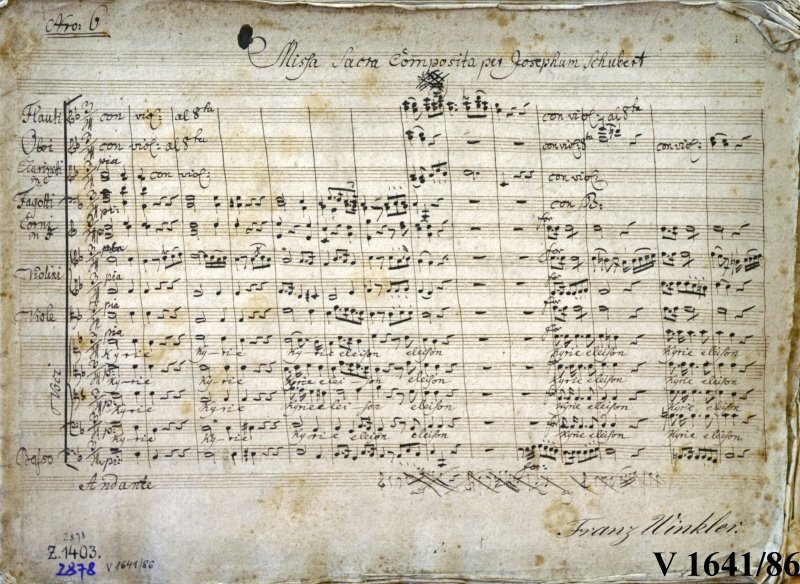 Nro: 6
Missa Sacra Composita per Josephum Schubert
Flauti con viol: al 8ta con viol: al 8ta
Oboi con viol: al 8ta con viol: 8ta con viol:
pia
Clarinetti in C con viol: con viol:
Fagotti con B:
pi:
Corni in for
Violini for
pia for
Viole pia for
pia for
Kyrie Ky-rie Ky-rie eleison eleison Kyrie eleison Kyrie eleison
Voci
Ky-rie Ky-rie Kyrie elei-son eleison Kyrie eleison Kyrie eleison
Kyrie Ky-rie Kyrie elei son eleison Kyrie eleison Kyrie eleison
Kyrie Ky-rie Kyrie eleison eleison Kyrie eleison Kyrie eleison
Basso pi: for:
Andante
Franz Winkler.
2878
Z.1403.
2878 V 1641/86
V 1641/86